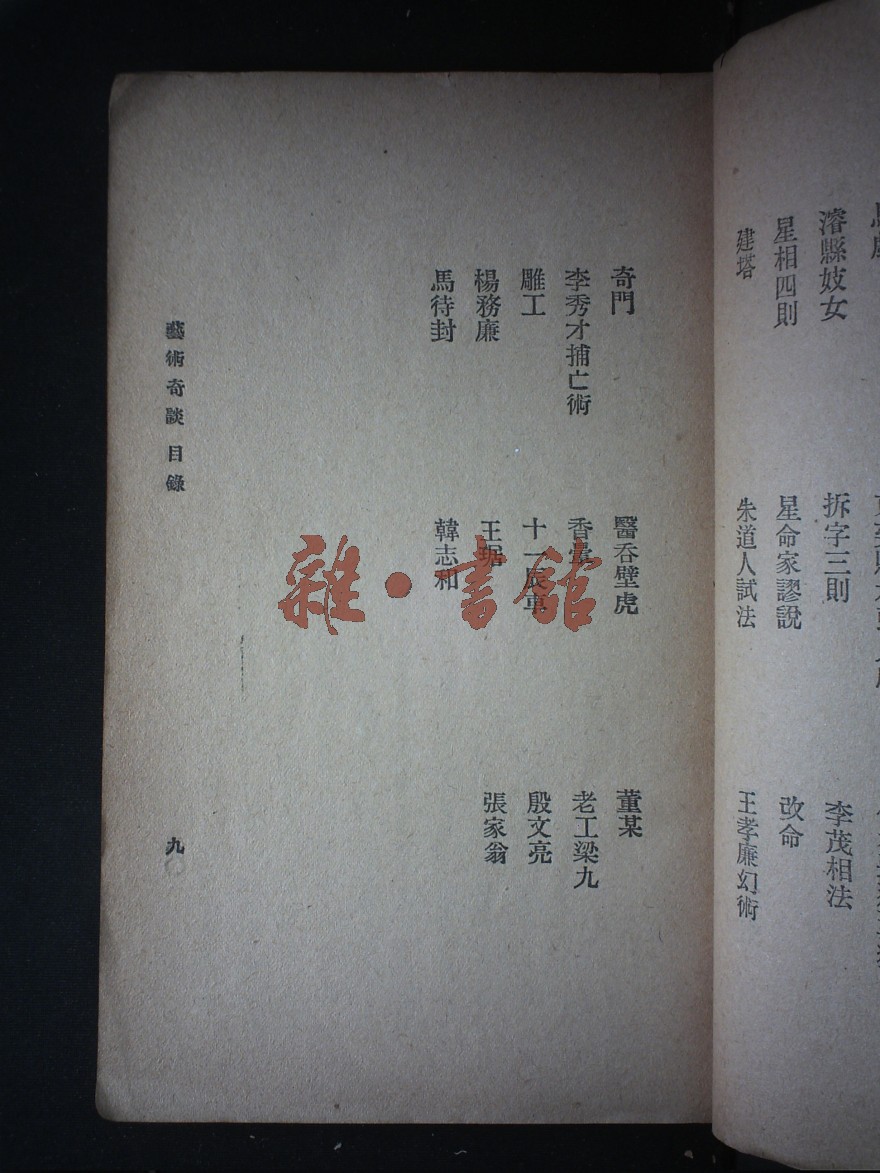 濬縣妓女
拆字三則
李茂相法
星相四則
星命家謬說
改命
建塔
朱道人試法
王孝廉幻術
奇門
醫吞壁虎
董某
李秀才捕亡術
香囊
老工梁九
雕工
十一辰車
殷文亮
楊務廉
王琚
張家翁
馬待封
韓志和
藝術奇談 目錄
九
雜·書館